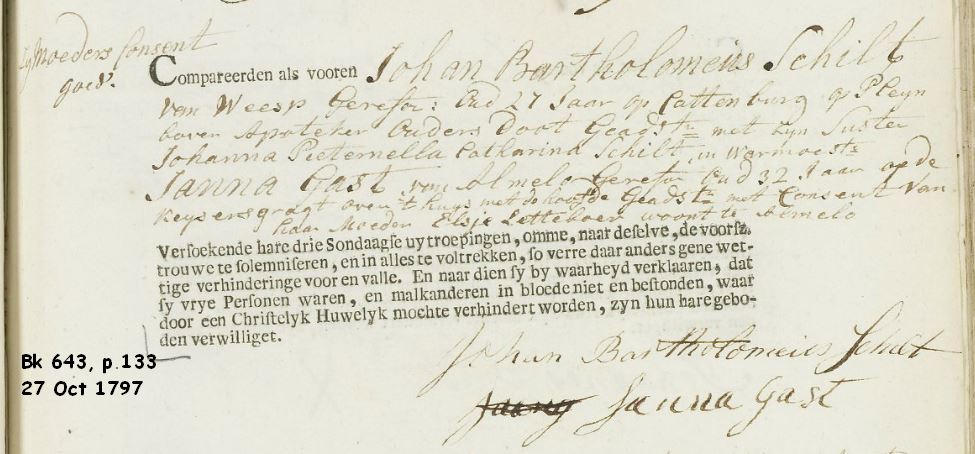 Moeders Consent
goed.
Compareerden als vooren Johan Bartholomeus Schilt
van Weesp Gerefor: Oud 27 Jaar op Cattenburg op Pleyn
boven Apoteker Ouders Doot Geadstr met zyn Suster
Johanna Pieternella Catharina Schilt in Warmoestr
Janna Gast van Almelo Gerefor Oud 32 Jaar op de
Keysersgragt over 't huys met de hoofde Geadstr met Consent van
haar Moeder Elsje Letteboer woont te Aemelo
Versoekende hare drie Sondaagse uytroepingen, omme, naar deselve, de voorsz.
trouwe te solemniseren, en in alles te voltrekken, so verre daar anders gene wet-
tige verhinderinge voor en valle. En naar dien sy by waarheyd verklaaren, dat
sy vrye Personen waren, en malkanderen in bloede niet en bestonden, waar
door een Christelyk Huwelyk mochte verhindert worden, zyn hun hare gebo-
den verwilliget.
Johan Bartholomeus Schilt
Janna Gast
Bk 643, p.133
27 Oct 1797